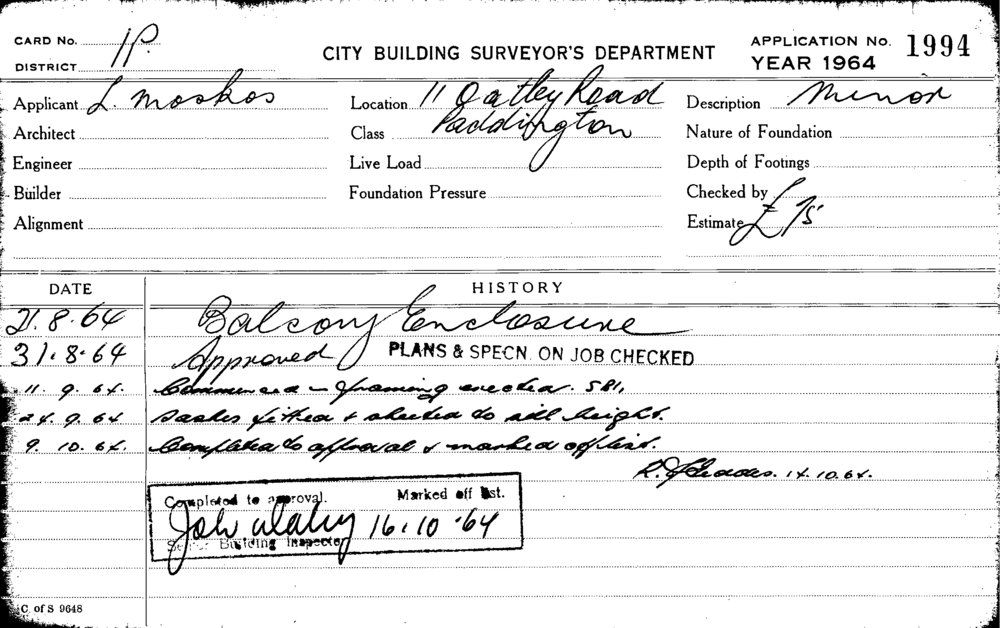 CARD No. 1P. CITY BUILDING SURVEYOR'S DEPARTMENT APPLICATION No. 1994
DISTRICT YEAR 1964
Applicant L. Moskos Location 11 Oatley Road Description Minor
Architect Class Paddington Nature of Foundation
Engineer Live Load Depth of Footings
Builder Foundation Pressure Checked by
Alignment Estimate £75
DATE HISTORY
21.8.64 Balcony Enclosure
31.8.64 Approved PLANS & SPECN. ON JOB CHECKED
11. 9. 64. Commenced - framing erected.
24. 9. 64 Sashes fitted & sheeted to sill height.
9. 10. 64. Completed to approval & marked off list.
14.10.64.
Completed to approval. Marked off list.
16.10.64
Senior Building Inspector
C. of S 9648